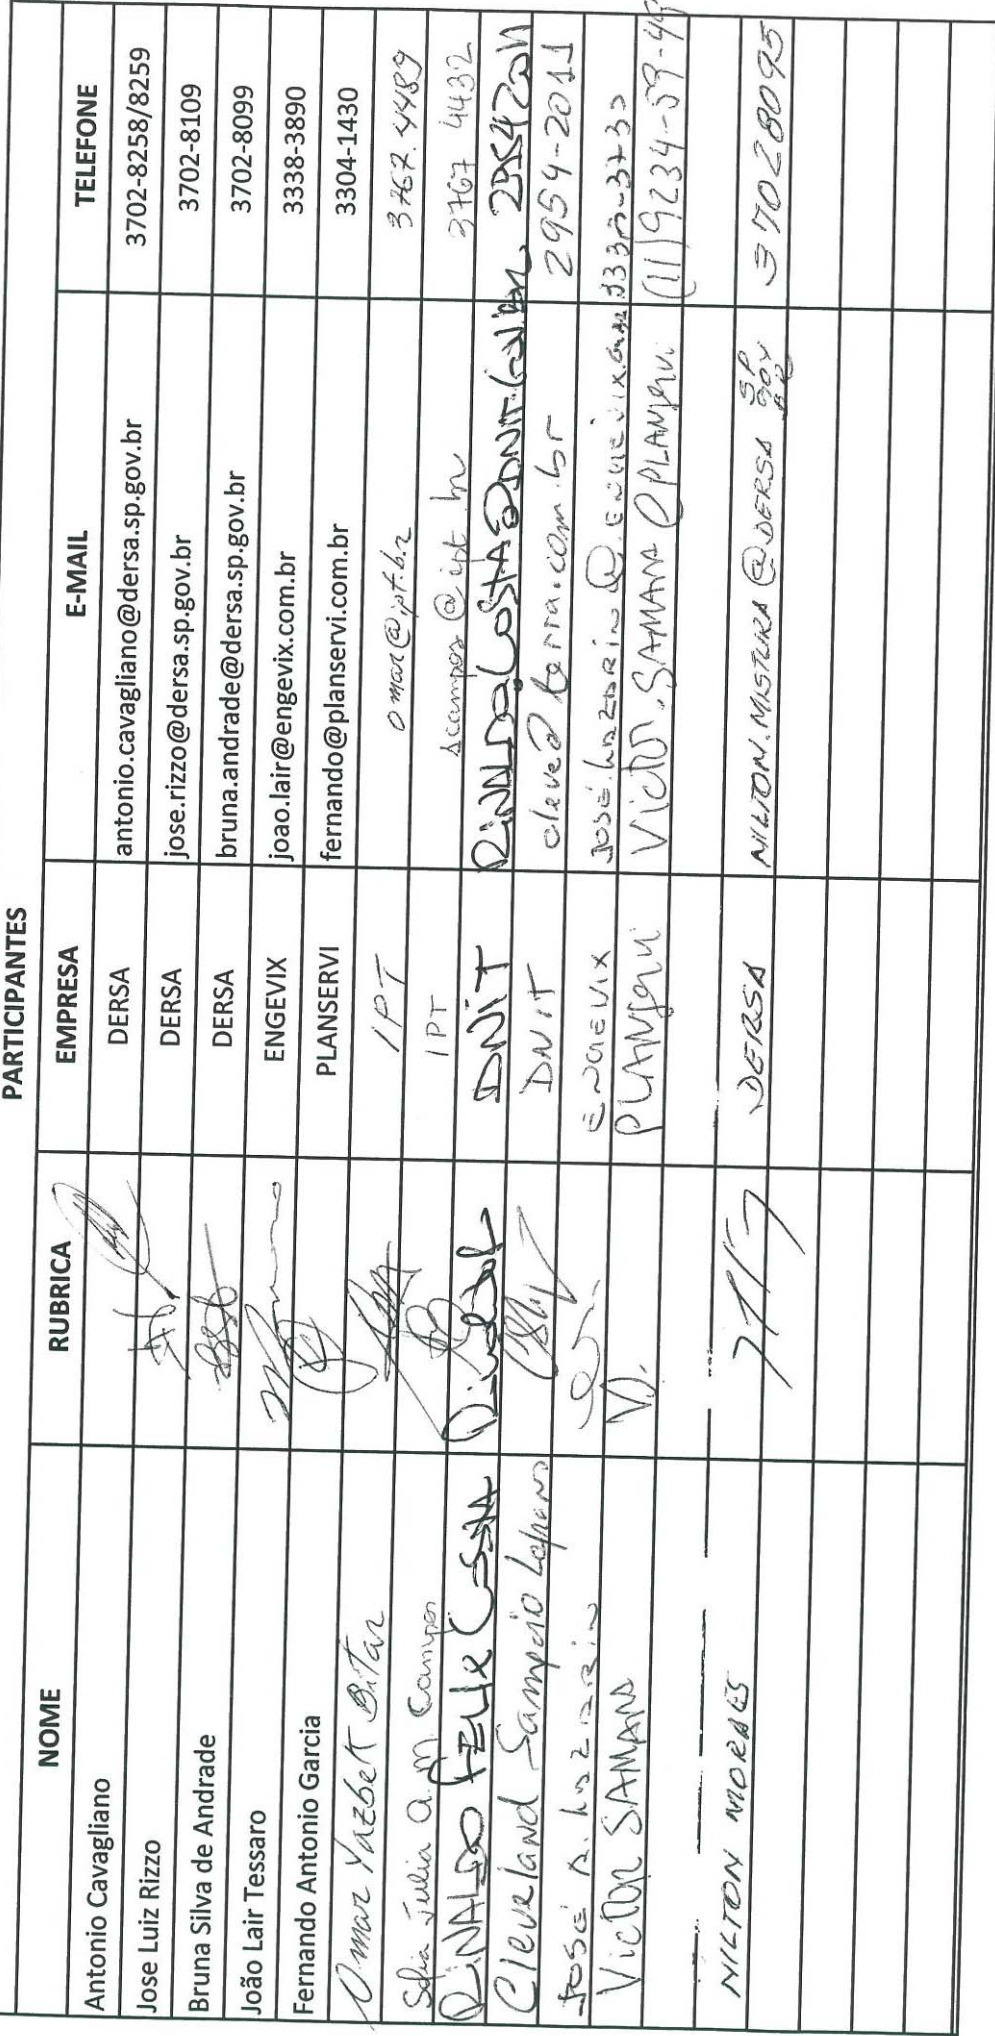 PARTICIPANTES
NOME RUBRICA EMPRESA E-MAIL TELEFONE
Antonio Cavagliano DERSA antonio.cavagliano@dersa.sp.gov.br 3702-8258/8259
Jose Luiz Rizzo DERSA jose.rizzo@dersa.sp.gov.br 3702-8109
Bruna Silva de Andrade DERSA bruna.andrade@dersa.sp.gov.br 3702-8099
João Lair Tessaro ENGEVIX joao.lair@engevix.com.br 3338-3890
Fernando Antonio Garcia PLANSERVI fernando@planservi.com.br 3304-1430
Omar Yazbek Bitar IPT omar@ipt.br 3767.4489
Sofia Julia A.M. Campos IPT scampos@ipt.br 3767 4432
RINALDO FELIX COSTA DNIT 29542011
Cleveland Sampaio DNIT cleve@terra.com.br 2954-2011
JOSÉ ENGEVIX
Victor SAMANO PLANSERVI Victor.SAMANO@PLANSERVI (11)9234-59-
NILTON MORAES DERSA NILTON.MISTURA@DERSA SP GOV BR 37028095